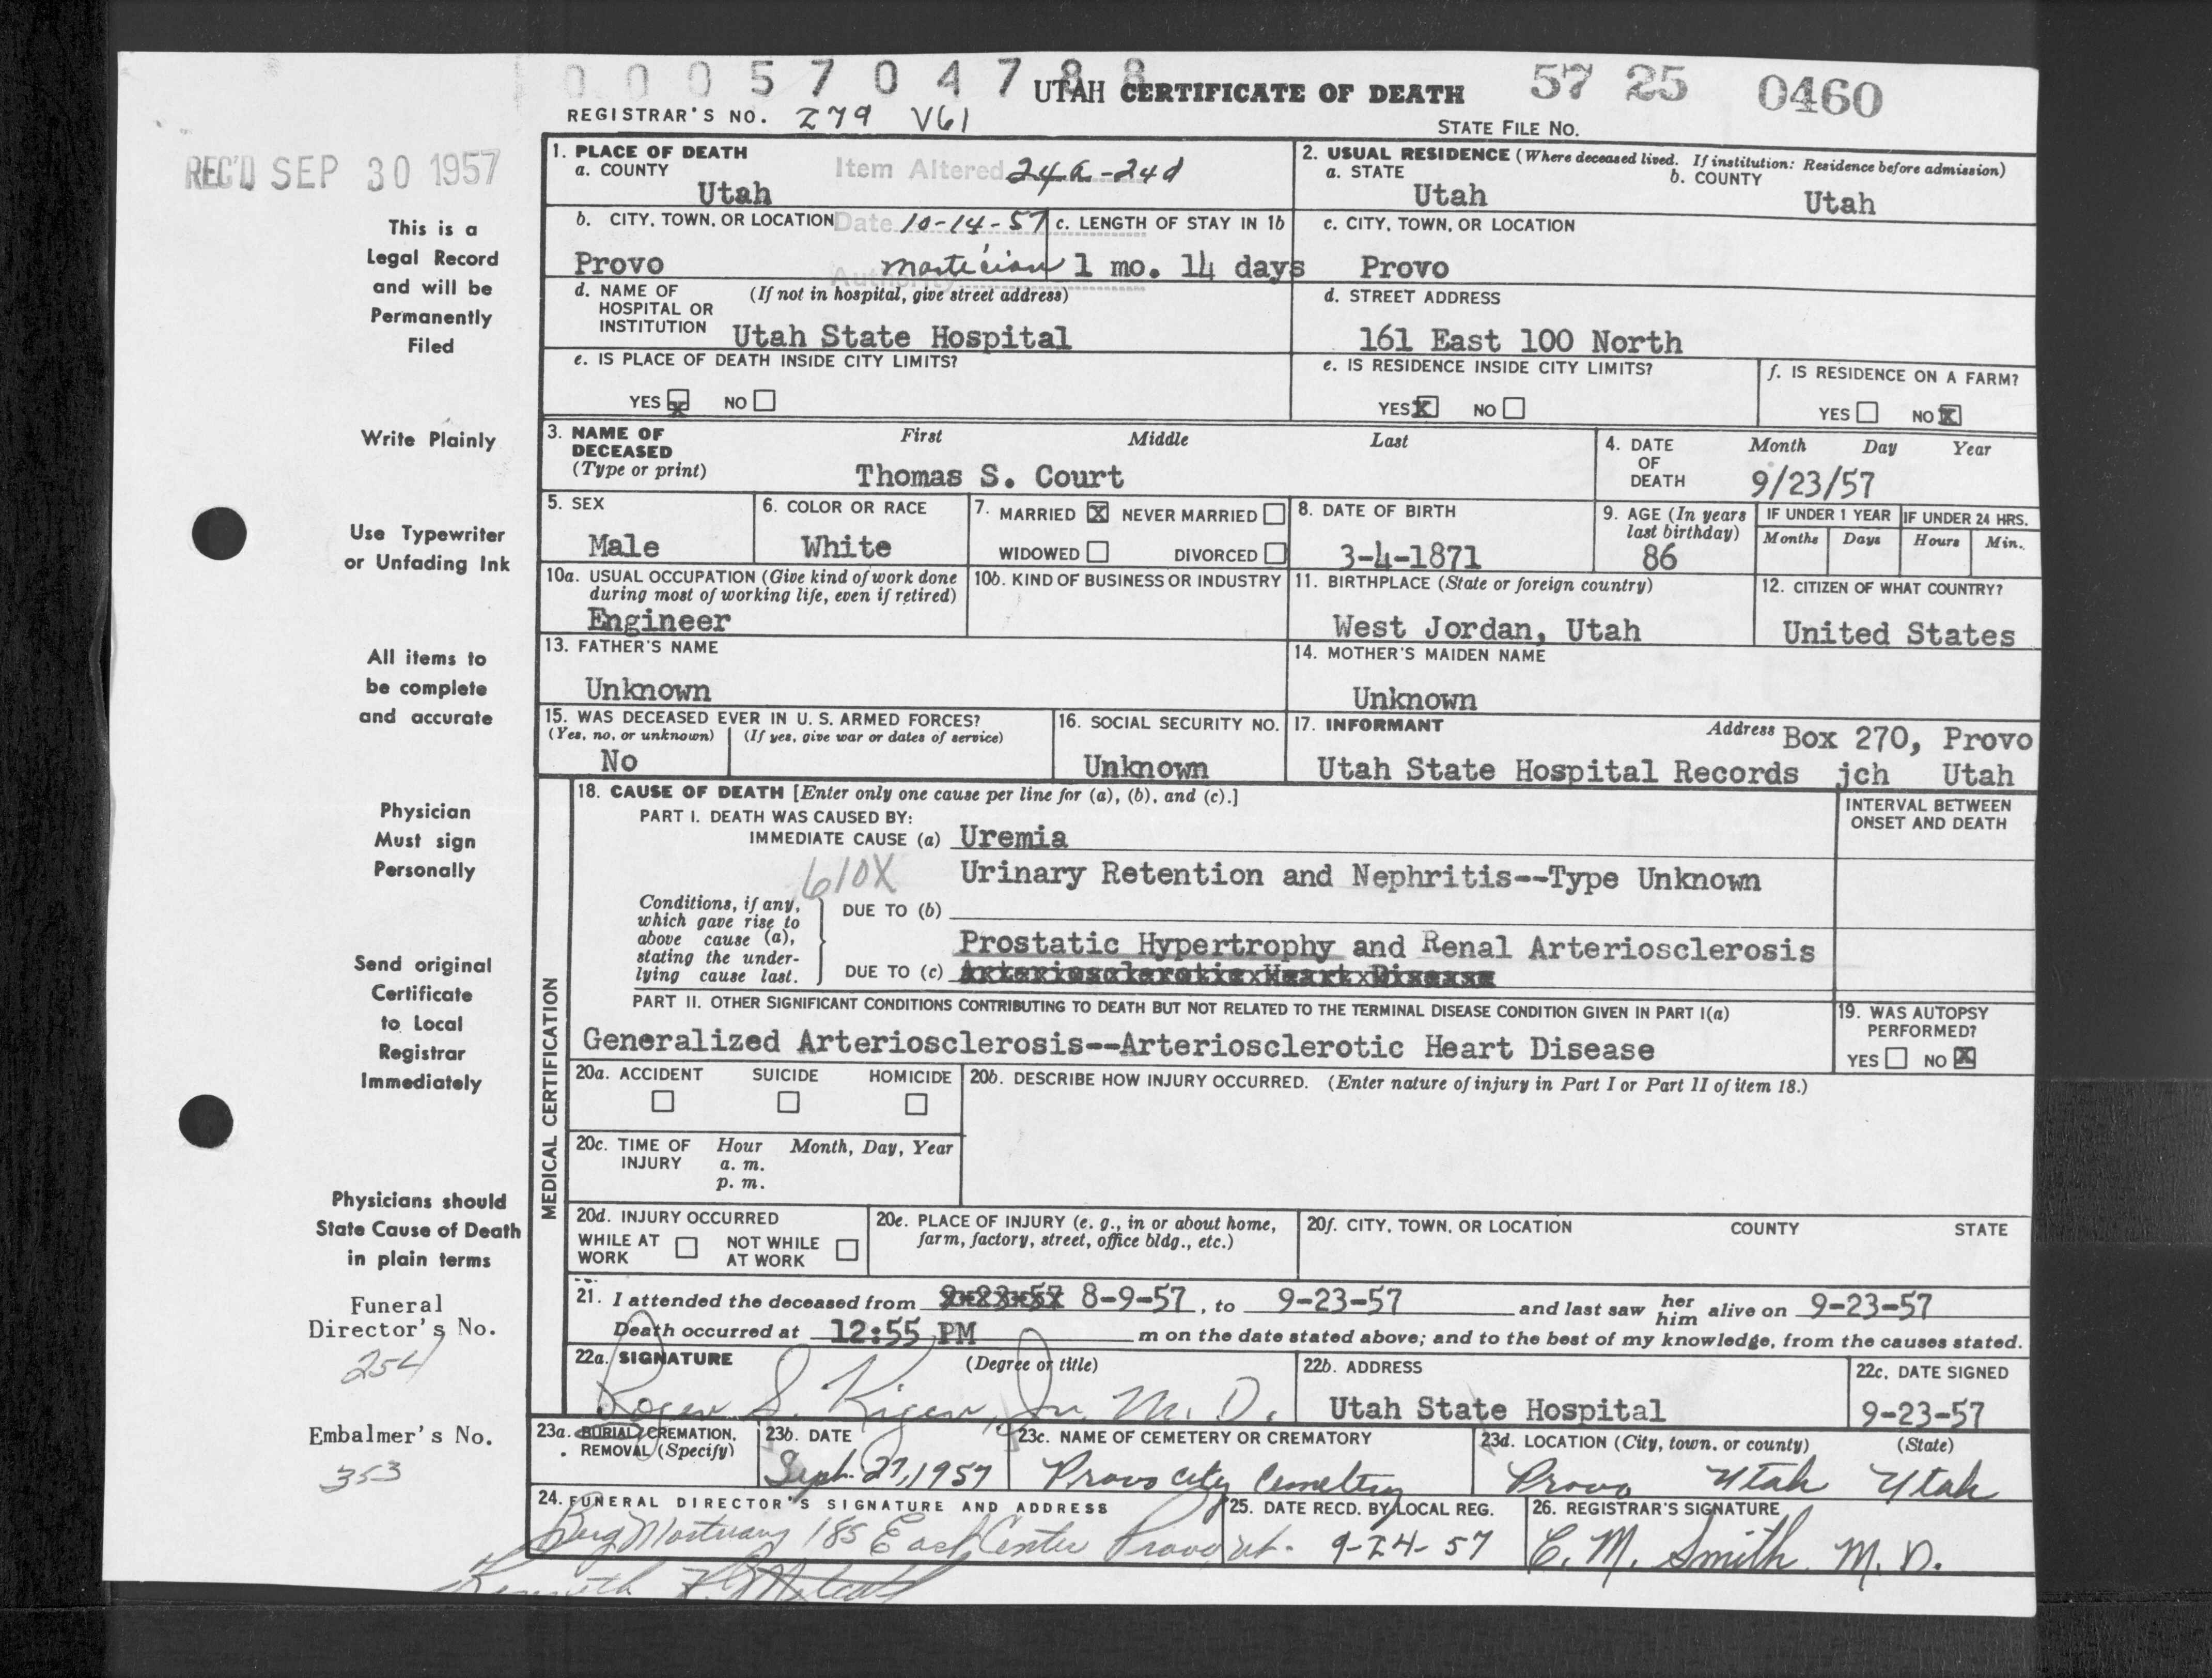 0 0 0 5 7 0 4 7 8 8
UTAH CERTIFICATE OF DEATH 57 25 0460
REGISTRAR'S NO. 279 V61
STATE FILE NO.
REC'D SEP 30 1957
This is a
Legal Record
and will be
Permanently
Filed
Write Plainly
Use Typewriter
or Unfading Ink
All items to
be complete
and accurate
Physician
Must sign
Personally
Send original
Certificate
to Local
Registrar
Immediately
Physicians should
State Cause of Death
in plain terms
Funeral
Director's No.
254
Embalmer's No.
353
1. PLACE OF DEATH
a. COUNTY
Utah
Item Altered 24a-24d
Date 10-14-57
Authority mortician
2. USUAL RESIDENCE (Where deceased lived. If institution: Residence before admission)
a. STATE
Utah
b. COUNTY
Utah
b. CITY, TOWN, OR LOCATION
Provo
c. LENGTH OF STAY IN 1b
1 mo. 14 days
c. CITY, TOWN, OR LOCATION
Provo
d. NAME OF (If not in hospital, give street address)
HOSPITAL OR
INSTITUTION Utah State Hospital
d. STREET ADDRESS
161 East 100 North
e. IS PLACE OF DEATH INSIDE CITY LIMITS?
YES X NO
e. IS RESIDENCE INSIDE CITY LIMITS?
YES X NO
f. IS RESIDENCE ON A FARM?
YES NO X
3. NAME OF First Middle Last
DECEASED
(Type or print) Thomas S. Court
4. DATE Month Day Year
OF
DEATH 9/23/57
5. SEX
Male
6. COLOR OR RACE
White
7. MARRIED X NEVER MARRIED
WIDOWED DIVORCED
8. DATE OF BIRTH
3-4-1871
9. AGE (In years
last birthday)
86
IF UNDER 1 YEAR
Months Days
IF UNDER 24 HRS.
Hours Min.
10a. USUAL OCCUPATION (Give kind of work done
during most of working life, even if retired)
Engineer
10b. KIND OF BUSINESS OR INDUSTRY
11. BIRTHPLACE (State or foreign country)
West Jordan, Utah
12. CITIZEN OF WHAT COUNTRY?
United States
13. FATHER'S NAME
Unknown
14. MOTHER'S MAIDEN NAME
Unknown
15. WAS DECEASED EVER IN U. S. ARMED FORCES?
(Yes, no, or unknown) (If yes, give war or dates of service)
No
16. SOCIAL SECURITY NO.
Unknown
17. INFORMANT Address Box 270, Provo
Utah State Hospital Records jch Utah
MEDICAL CERTIFICATION
18. CAUSE OF DEATH [Enter only one cause per line for (a), (b), and (c).]
INTERVAL BETWEEN
ONSET AND DEATH
PART I. DEATH WAS CAUSED BY:
IMMEDIATE CAUSE (a) Uremia
610X
Urinary Retention and Nephritis--Type Unknown
Conditions, if any,
which gave rise to
above cause (a),
stating the under-
lying cause last.
DUE TO (b)
Prostatic Hypertrophy and Renal Arteriosclerosis
DUE TO (c) Arteriosclerotic Heart Disease
PART II. OTHER SIGNIFICANT CONDITIONS CONTRIBUTING TO DEATH BUT NOT RELATED TO THE TERMINAL DISEASE CONDITION GIVEN IN PART I(a)
Generalized Arteriosclerosis--Arteriosclerotic Heart Disease
19. WAS AUTOPSY
PERFORMED?
YES NO X
20a. ACCIDENT SUICIDE HOMICIDE
20b. DESCRIBE HOW INJURY OCCURRED. (Enter nature of injury in Part I or Part II of item 18.)
20c. TIME OF Hour Month, Day, Year
INJURY a. m.
p. m.
20d. INJURY OCCURRED
WHILE AT NOT WHILE
WORK AT WORK
20e. PLACE OF INJURY (e. g., in or about home,
farm, factory, street, office bldg., etc.)
20f. CITY, TOWN, OR LOCATION COUNTY STATE
21. I attended the deceased from 8-9-57, to 9-23-57 and last saw her him alive on 9-23-57
Death occurred at 12:55 PM m on the date stated above; and to the best of my knowledge, from the causes stated.
22a. SIGNATURE (Degree or title)
Roger S. Kiger, Jr. M. D.
22b. ADDRESS
Utah State Hospital
22c. DATE SIGNED
9-23-57
23a. BURIAL, CREMATION,
REMOVAL (Specify)
23b. DATE
Sept. 27, 1957
23c. NAME OF CEMETERY OR CREMATORY
Provo City Cemetery
23d. LOCATION (City, town, or county) (State)
Provo Utah Utah
24. FUNERAL DIRECTOR'S SIGNATURE AND ADDRESS
Berg Mortuary 185 East Center Provo Ut.
25. DATE RECD. BY LOCAL REG.
9-24-57
26. REGISTRAR'S SIGNATURE
C. M. Smith M. D.
Kenneth